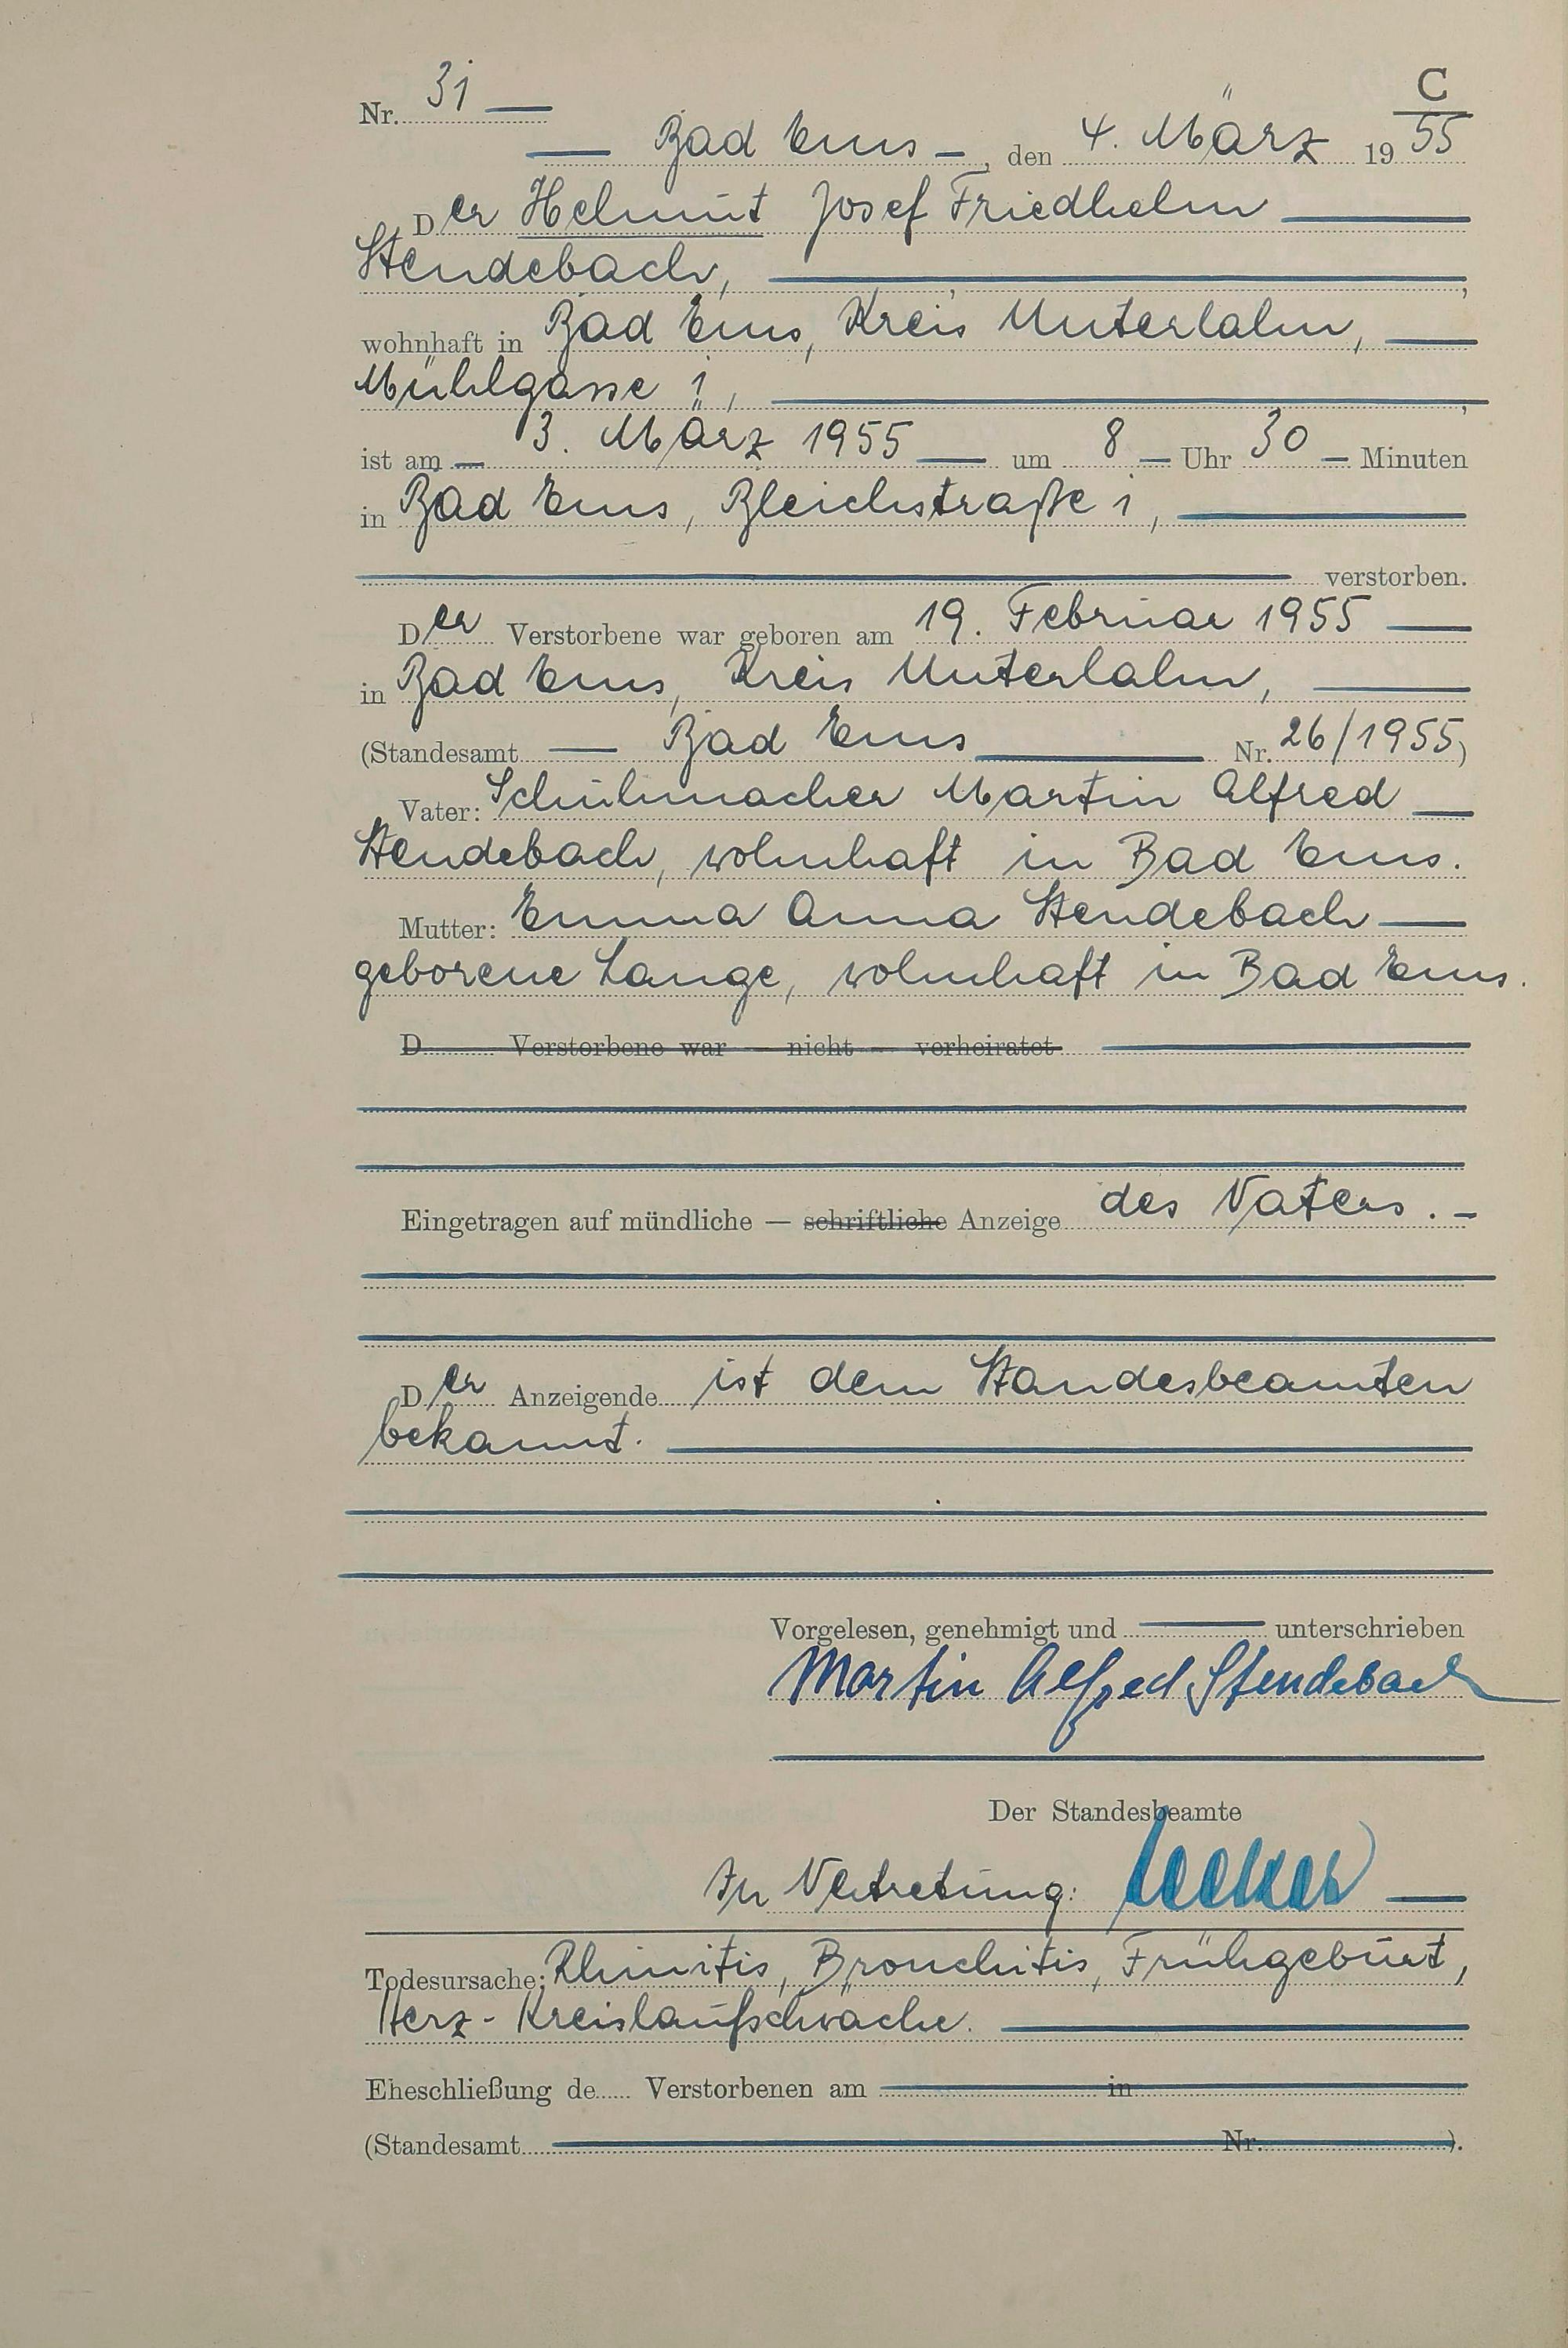 C
Nr. 31
Bad Ems, den 4. März 1955
Der Helmut Josef Friedhelm
Stendebach,
wohnhaft in Bad Ems, Kreis Unterlahn,
Mühlgasse 1,
ist am 3. März 1955 um 8 Uhr 30 Minuten
in Bad Ems, Bleichstraße 1,
verstorben.
Der Verstorbene war geboren am 19. Februar 1955
in Bad Ems, Kreis Unterlahn,
(Standesamt Bad Ems Nr. 26/1955)
Vater: Schuhmacher Martin Alfred
Stendebach, wohnhaft in Bad Ems.
Mutter: Emma Anna Stendebach
geborene Lange, wohnhaft in Bad Ems.
D Verstorbene war — nicht — verheiratet
Eingetragen auf mündliche — schriftliche Anzeige des Vaters. -
Der Anzeigende ist dem Standesbeamten
bekannt.
Vorgelesen, genehmigt und unterschrieben
Martin Alfred Stendebach
Der Standesbeamte
In Vertretung:
Todesursache: Rhinitis, Bronchitis, Frühgeburt,
Herz-Kreislaufschwäche.
Eheschließung de Verstorbenen am in
(Standesamt Nr. ).